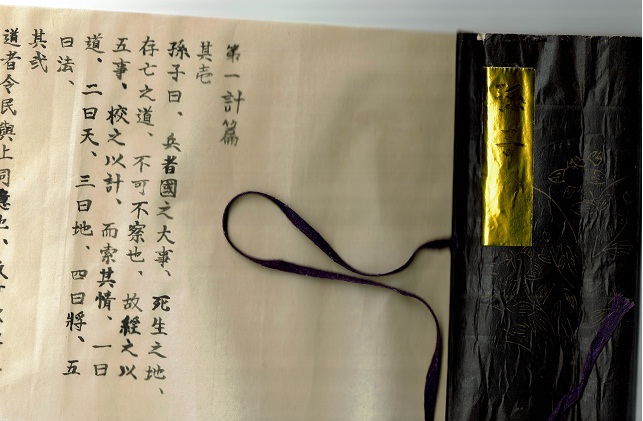 孫子
第一計篇
其壱
孫子曰、兵者國之大事、死生之地、
存亡之道、不可不察也、故經之以
五事、校之以計、而索其情、一曰
道、二曰天、三曰地、四曰將、五
曰法、
其弐
道者令民與上同意也、